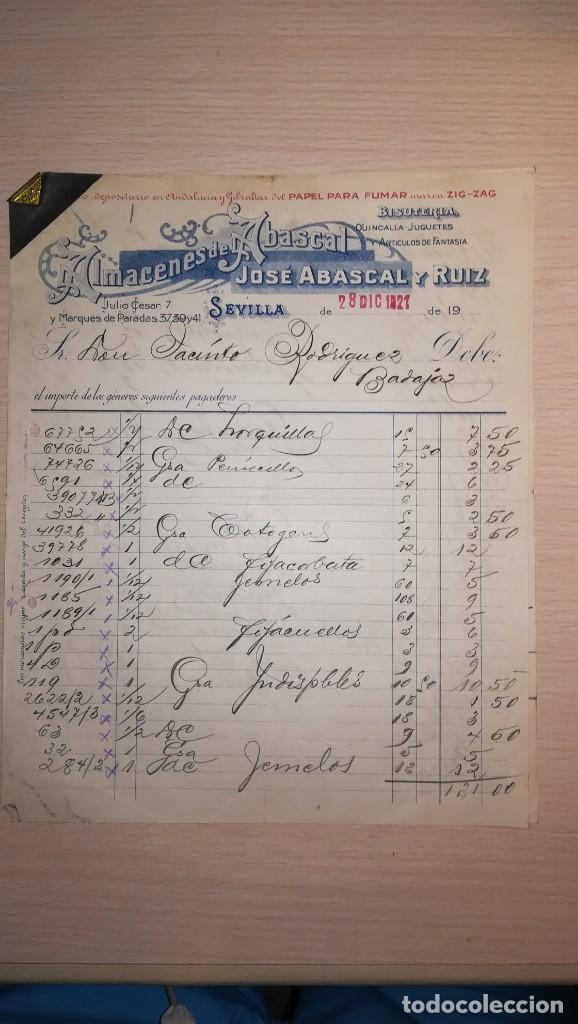 depositario en Andalucia y Gibraltar del PAPEL PARA FUMAR marca ZIG-ZAG
Almacenes de Abascal
BISUTERIA,
QUINCALLA JUGUETES
Y ARTICULOS DE FANTASIA
JOSÉ ABASCAL Y RUIZ
Julio Cesar, 7
y Marques de Paradas 37,39 y 41
SEVILLA de 28 DIC 1921 de 19
Sr. Don Jacinto Rodriguez Debe:
Badajoz
el importe de los generos siguientes pagaderos
67752 x 1/2 DC Horquillas 15 7 50
64665 x 1/2 7 50 3 75
74726 x 1/12 Gsa 27 2 25
6591 x 1/4 dc 24 6
1/2 6 3
332 " 1/2 5 2 50
41926 x 1/2 Gsa 7 3 50
39778 x 1 12 12
1031 x 1 dc Fijacorbata 7 7
1190/1 x 1/12 Jemelos 60 5
1185 x 1/12 108 9
1189/1 x 1/12 60 5
x 2 Fijacuellos 3 6
x 1 3 3
419 x 1 9 9
119 x 1 Gsa Indispbles 10 50 10 50
2622/2 x 1/12 18 1 50
4547/3 x 1/6 18 3
63 x 1/2 DC 9 4 50
32 1 Gsa 5 5
284/2 x 1 dc Jemelos 12 12
121 00
todocoleccion